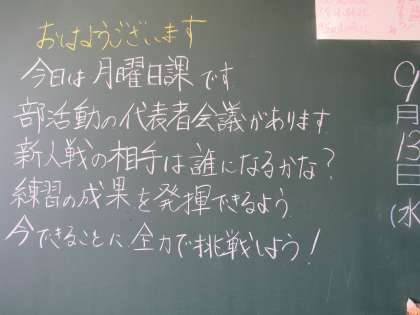 おはようございます
今日は月曜日課です
部活動の代表者会議があります
新人戦の相手は誰になるかな？
練習の成果を発揮できるよう
今できることに全力で挑戦しよう！
9
月
13
日
(水